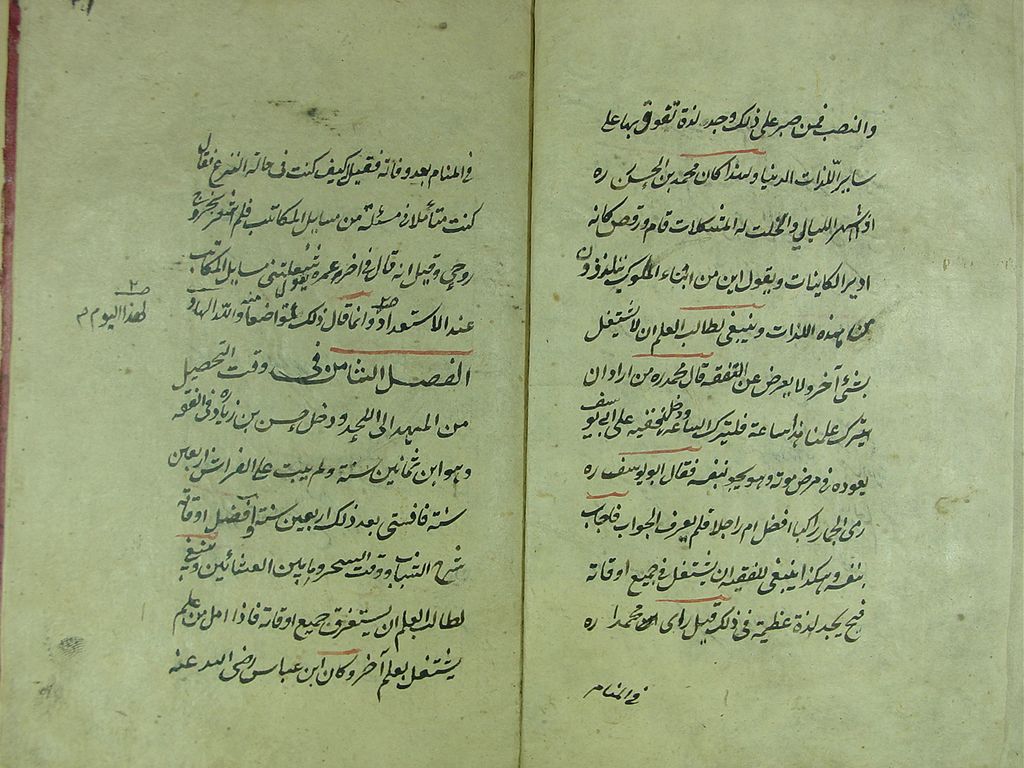 والنصب فمن صبر على ذلك وجد لذة تفوق بها على
ساير اللذات الدنيا ولهذا كان محمد بن الحسن ره
اذا اسهر الليالي وانحلت له المشكلات قام ورقص كانه
ادير الكاينات ويقول اين من ابناء الملوك
من هذه اللذات وينبغي لطالب العلم ان لا يشتغل
بشئ آخر ولا يعرض عن التفقه قال محمد ره من اراد ان
يترك علمنا هذا ساعة فليترك الساعة ودخل فقيه على ابي يوسف
يعوده في مرض موته وهو يجود بنفسه فقال ابو يوسف ره
رمى الجمار راكبا افضل ام راجلا فلم يعرف الجواب فاجاب
بنفسه وهكذا ينبغي للفقيه ان يشتغل في جميع اوقاته
فح يجد لذة عظيمة في ذلك قيل راى محمدا ره
في المنام
في المنام بعد وفاته فقيل كيف كنت في حالة النزع فقال
كنت متأملا في مسئلة من مسايل المكاتب فلم اشعر بخروج
روحي وقيل انه قال في اخر عمره شغلتني مسايل المكاتب
عند الاستعداد وانما قال ذلك تواضعا منه والله الهاد
لهذا اليوم م
الفصل الثامن في وقت التحصيل
من المهد الى اللحد ودخل حسن بن زياد ره في الفقه
وهو ابن ثمانين سنة ولم يبت على الفراش اربعين
سنة فافتى بعد ذلك اربعين سنة وافضل اوقاته
شرخ الشباب ووقت السحر وما بين العشائين وينبغي
لطالب العلم ان يستغرق جميع اوقاته فاذا امل من علم
يشتغل بعلم آخر وكان ابن عباس رضى الله عنه